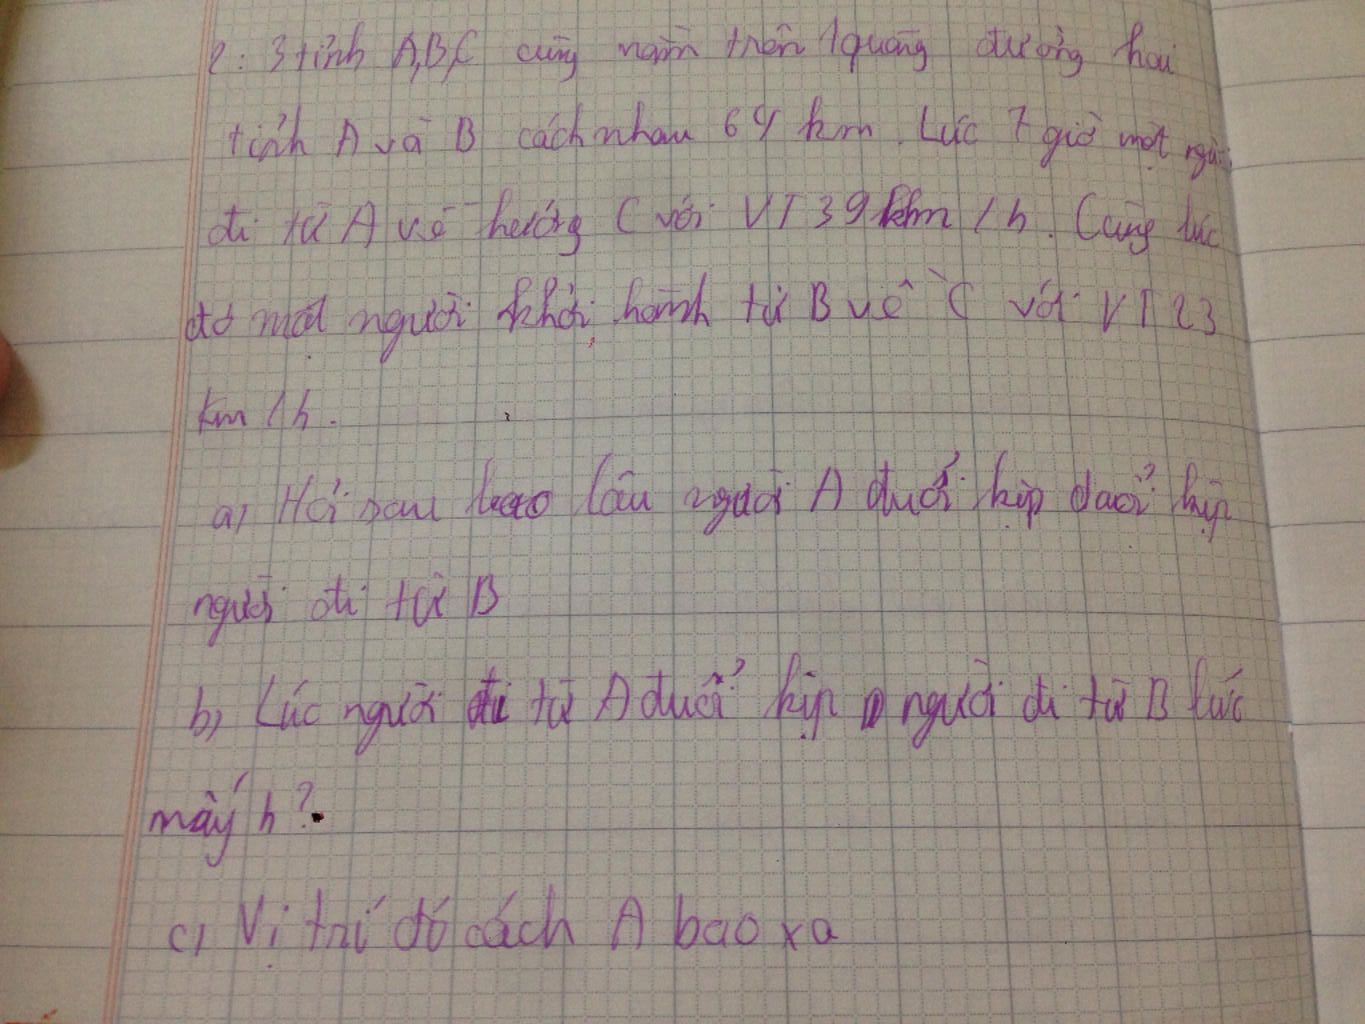 2: 3 tỉnh A,B,C cùng nằm trên 1 quãng đường hai
tỉnh A và B cách nhau 64 km. Lúc 7 giờ một người
đi từ A về hướng C với VT 39 km / h. Cùng lúc
đó một người khởi hành từ B về C với VT 23
km / h.
a, Hỏi sau bao lâu người A đuổi kịp đuổi kịp
người đi từ B
b, Lúc người đi từ A đuổi kịp người đi từ B lúc
mấy h?
c, Vị trí đó cách A bao xa